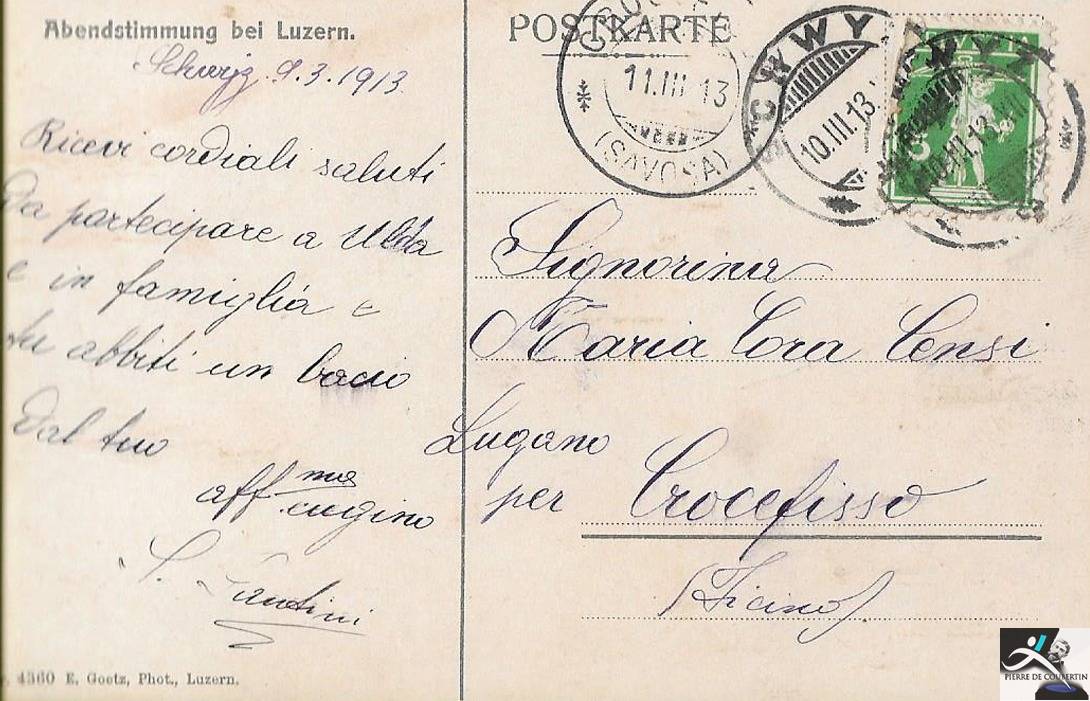 Abendstimmung bei Luzern.
Schwyz 9.3.1913
Ricevi cordiali saluti
Da partecipare a Ulda
e in famiglia e
tu abbiti un bacio
Dal tuo
aff mo cugino
S. Santini
4360 E. Goetz, Phot., Luzern.
POSTKARTE
11.III 13
(SAVOSA)
SCHWYZ
10.III.13.
Signorina
Maria Cora Censi
Lugano
per Crocefisso
(Ticino)
PIERRE DE COUBERTIN